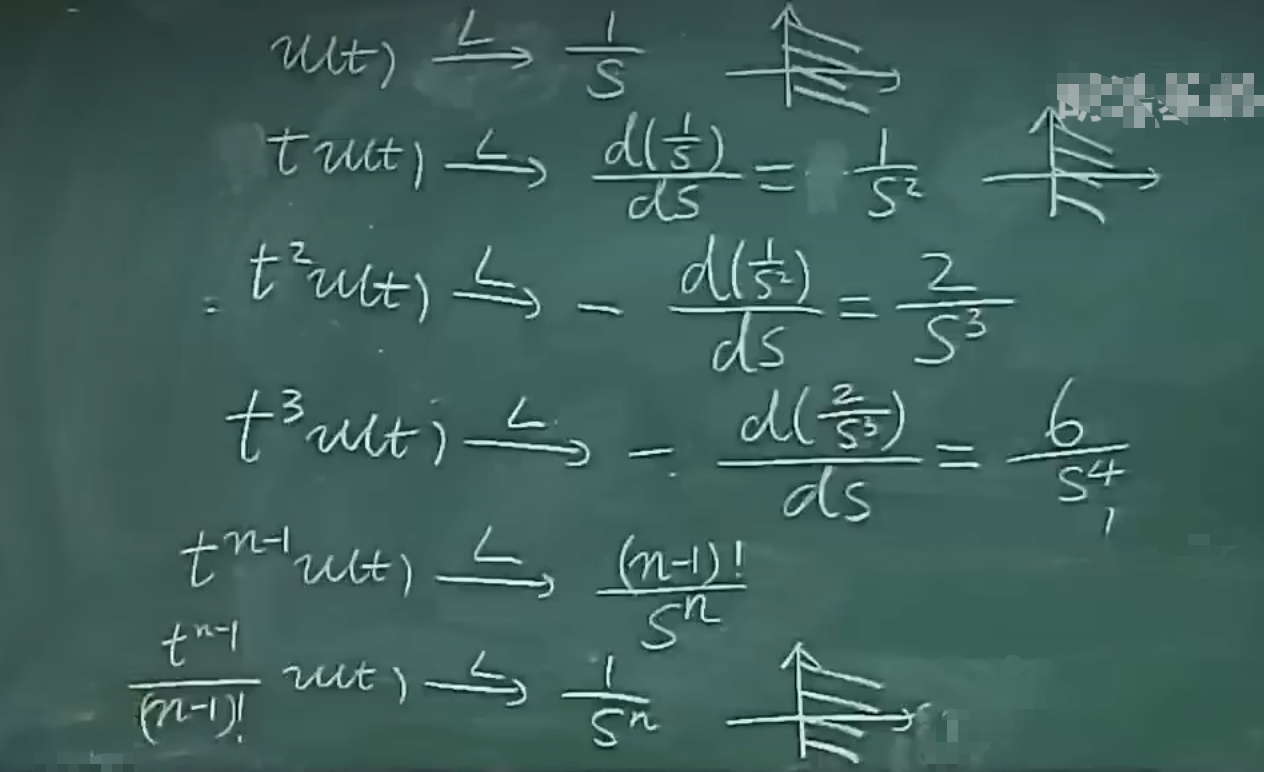 u(t) $\xrightarrow{L}$ $\frac{1}{s}$
t u(t) $\xrightarrow{L}$ $\frac{d(\frac{1}{s})}{ds} = \frac{1}{s^2}$
$t^2 u(t)$ $\xrightarrow{L}$ $-\frac{d(\frac{1}{s^2})}{ds} = \frac{2}{s^3}$
$t^3 u(t)$ $\xrightarrow{L}$ $-\frac{d(\frac{2}{s^3})}{ds} = \frac{6}{s^4}$
$t^{n-1} u(t)$ $\xrightarrow{L}$ $\frac{(n-1)!}{s^n}$
$\frac{t^{n-1}}{(n-1)!} u(t)$ $\xrightarrow{L}$ $\frac{1}{s^n}$